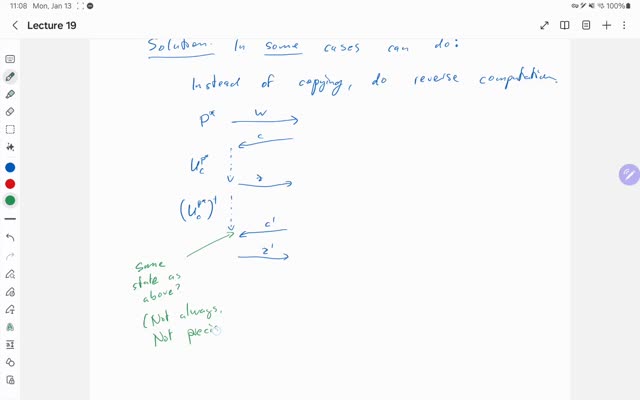 11:08 Mon, Jan 13
100%
Lecture 19
Solution: In some cases can do:
Instead of copying, do reverse computation.
P* w
c
U_c^{P*}
z
(U_c^{P*})†
c'
z'
Same
state as
above?
(Not always,
Not precis